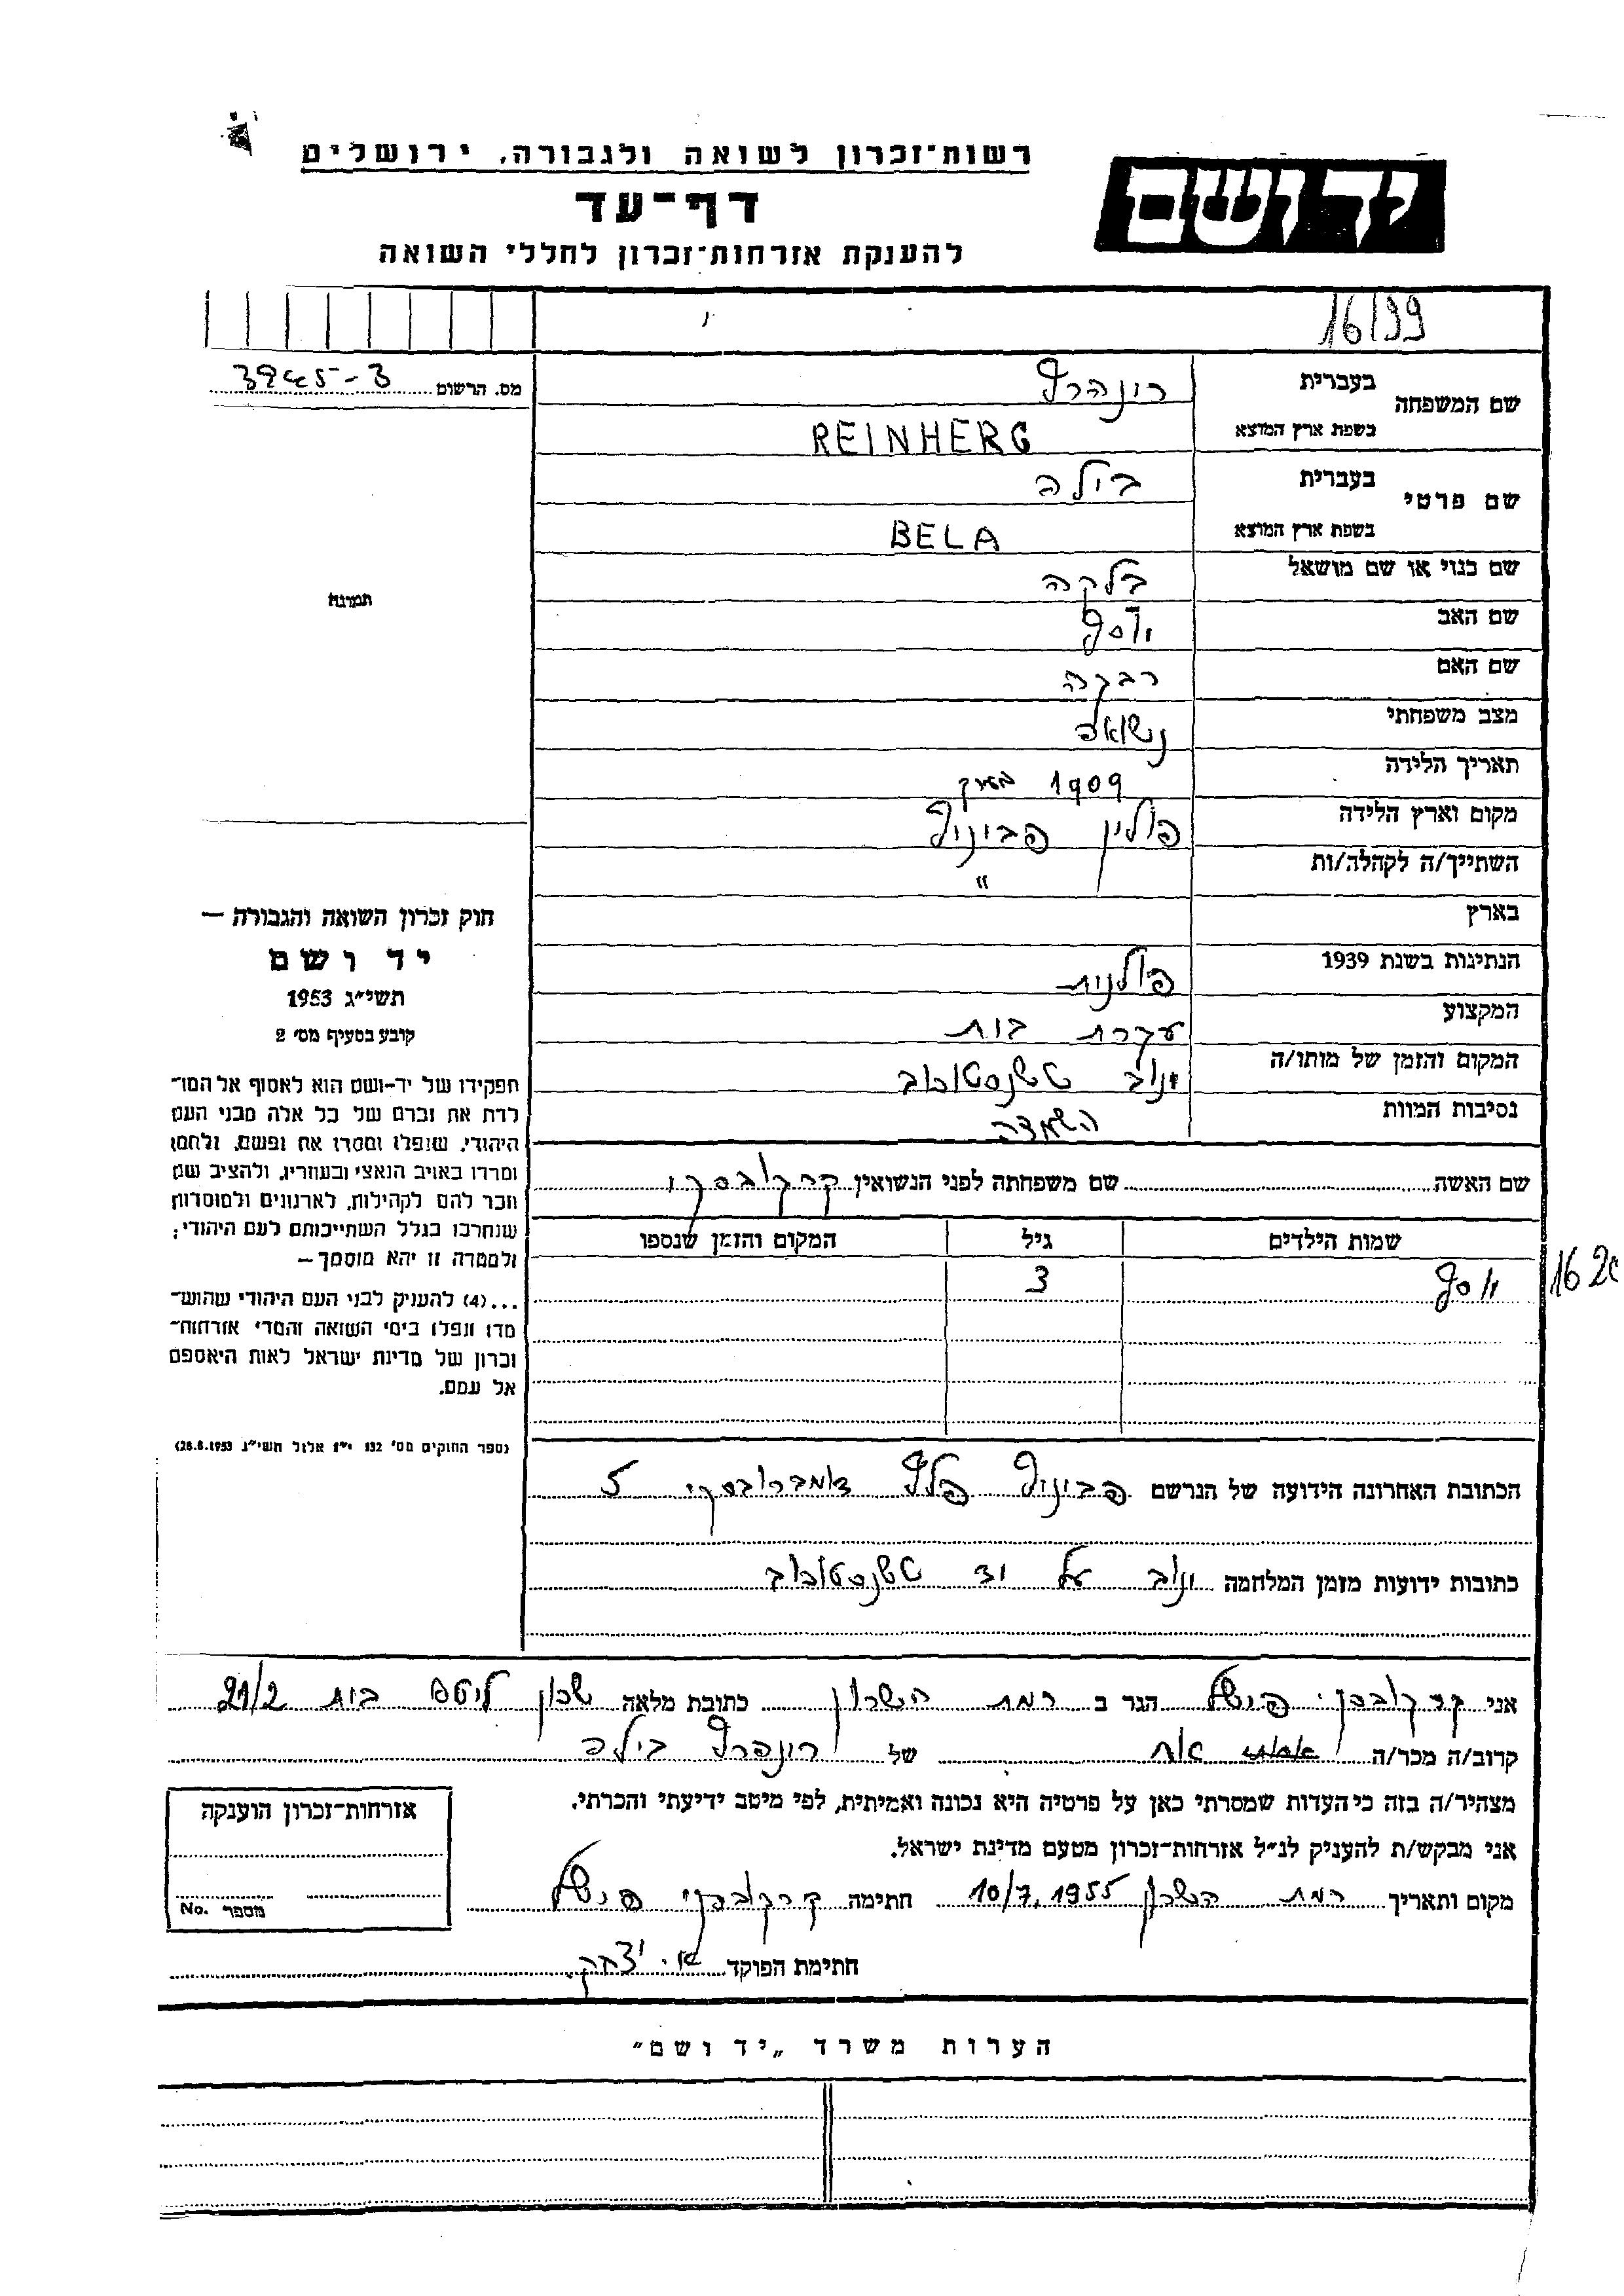 רשות־זכרון לשואה ולגבורה, ירושלים
יד ושם
דף־עד
להענקת אזרחות־זכרון לחללי השואה
16199
מס. הרשום 3945-3
שם המשפחה
בעברית רונהרג
בשפת ארץ המוצא REINHERG
שם פרטי
בעברית בילה
בשפת ארץ המוצא BELA
שם כנוי או שם מושאל בלקה
תמונה
שם האב יוסף
שם האם רבקה
מצב משפחתי נשואה
תאריך הלידה 1909
מקום וארץ הלידה פולין
השתייך/ה לקהלה/ות "
בארץ
הנתינות בשנת 1939 פולנית
המקצוע עקרת בית
המקום והזמן של מותו/ה ינוב טשנסטוכוב
נסיבות המוות השמדה
שם האשה שם משפחתה לפני הנשואין קרקובסקי
שמות הילדים גיל המקום והזמן שנספו
יוסף 3
הכתובת האחרונה הידועה של הנרשם דומברובסקי 5
כתובות ידועות מזמן המלחמה ינוב על יד טשנסטוכוב
חוק זכרון השואה והגבורה —
יד ושם
תשי״ג 1953
קובע בסעיף מס׳ 2
תפקידו של יד-ושם הוא לאסוף אל המו־
לדת את זכרם של כל אלה מבני העם
היהודי, שנפלו ומסרו את נפשם, נלחמו
ומרדו באויב הנאצי ובעוזריו, ולהציב שם
וזכר להם לקהילות, לארגונים ולמוסדות
שנחרבו בגלל השתייכותם לעם היהודי;
ולמטרה זו יהא מוסמך —
...(4) להעניק לבני העם היהודי שהוש־
מדו ונפלו בימי השואה והמרי אזרחות־
זכרון של מדינת ישראל לאות היאספם
אל עמם.
(ספר החוקים מס׳ 132 י״ז אלול תשי״ג 28.8.1953)
אני קרקובסקי פישל הגר ב רמת השרון כתובת מלאה שכון בית 21/2
קרוב/ה מכר/ה אח של רונהרג בילה
מצהיר/ה בזה כי העדות שמסרתי כאן על פרטיה היא נכונה ואמיתית, לפי מיטב ידיעתי והכרתי.
אני מבקש/ת להעניק לנ״ל אזרחות־זכרון מטעם מדינת ישראל.
מקום ותאריך רמת השרון 10/7.1955 חתימה קרקובסקי פישל
חתימת הפוקד א. יצחק
אזרחות־זכרון הוענקה
מספר No.
הערות משרד „יד ושם״